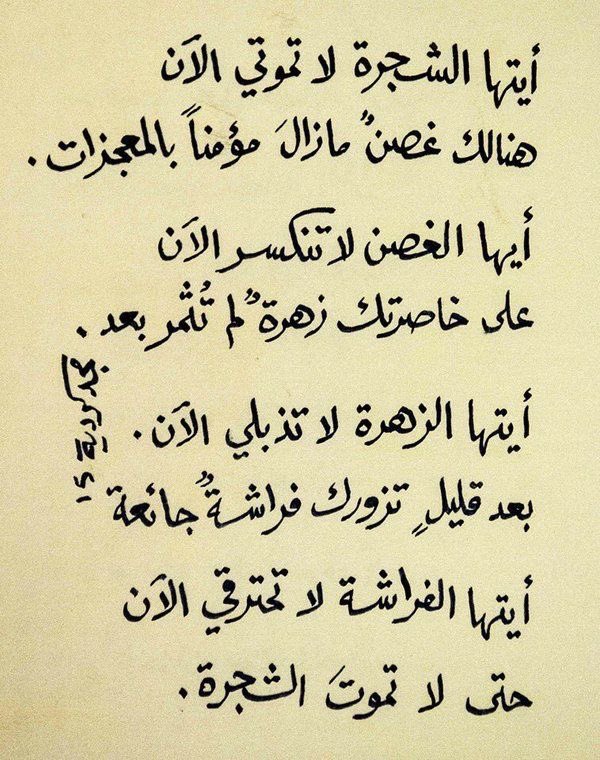 أيتها الشجرة لا تموتي الآن
هنالك غصنٌ مازالَ مؤمناً بالمعجزات .
أيها الغصن لا تنكسر الآن
على خاصرتك زهرةٌ لم تُثمر بعد .
أيتها الزهرة لا تذبلي الآن .
بعد قليلٍ تزورك فراشةٌ جائعة
أيتها الفراشة لا تحترقي الآن
حتى لا تموتَ الشجرة .